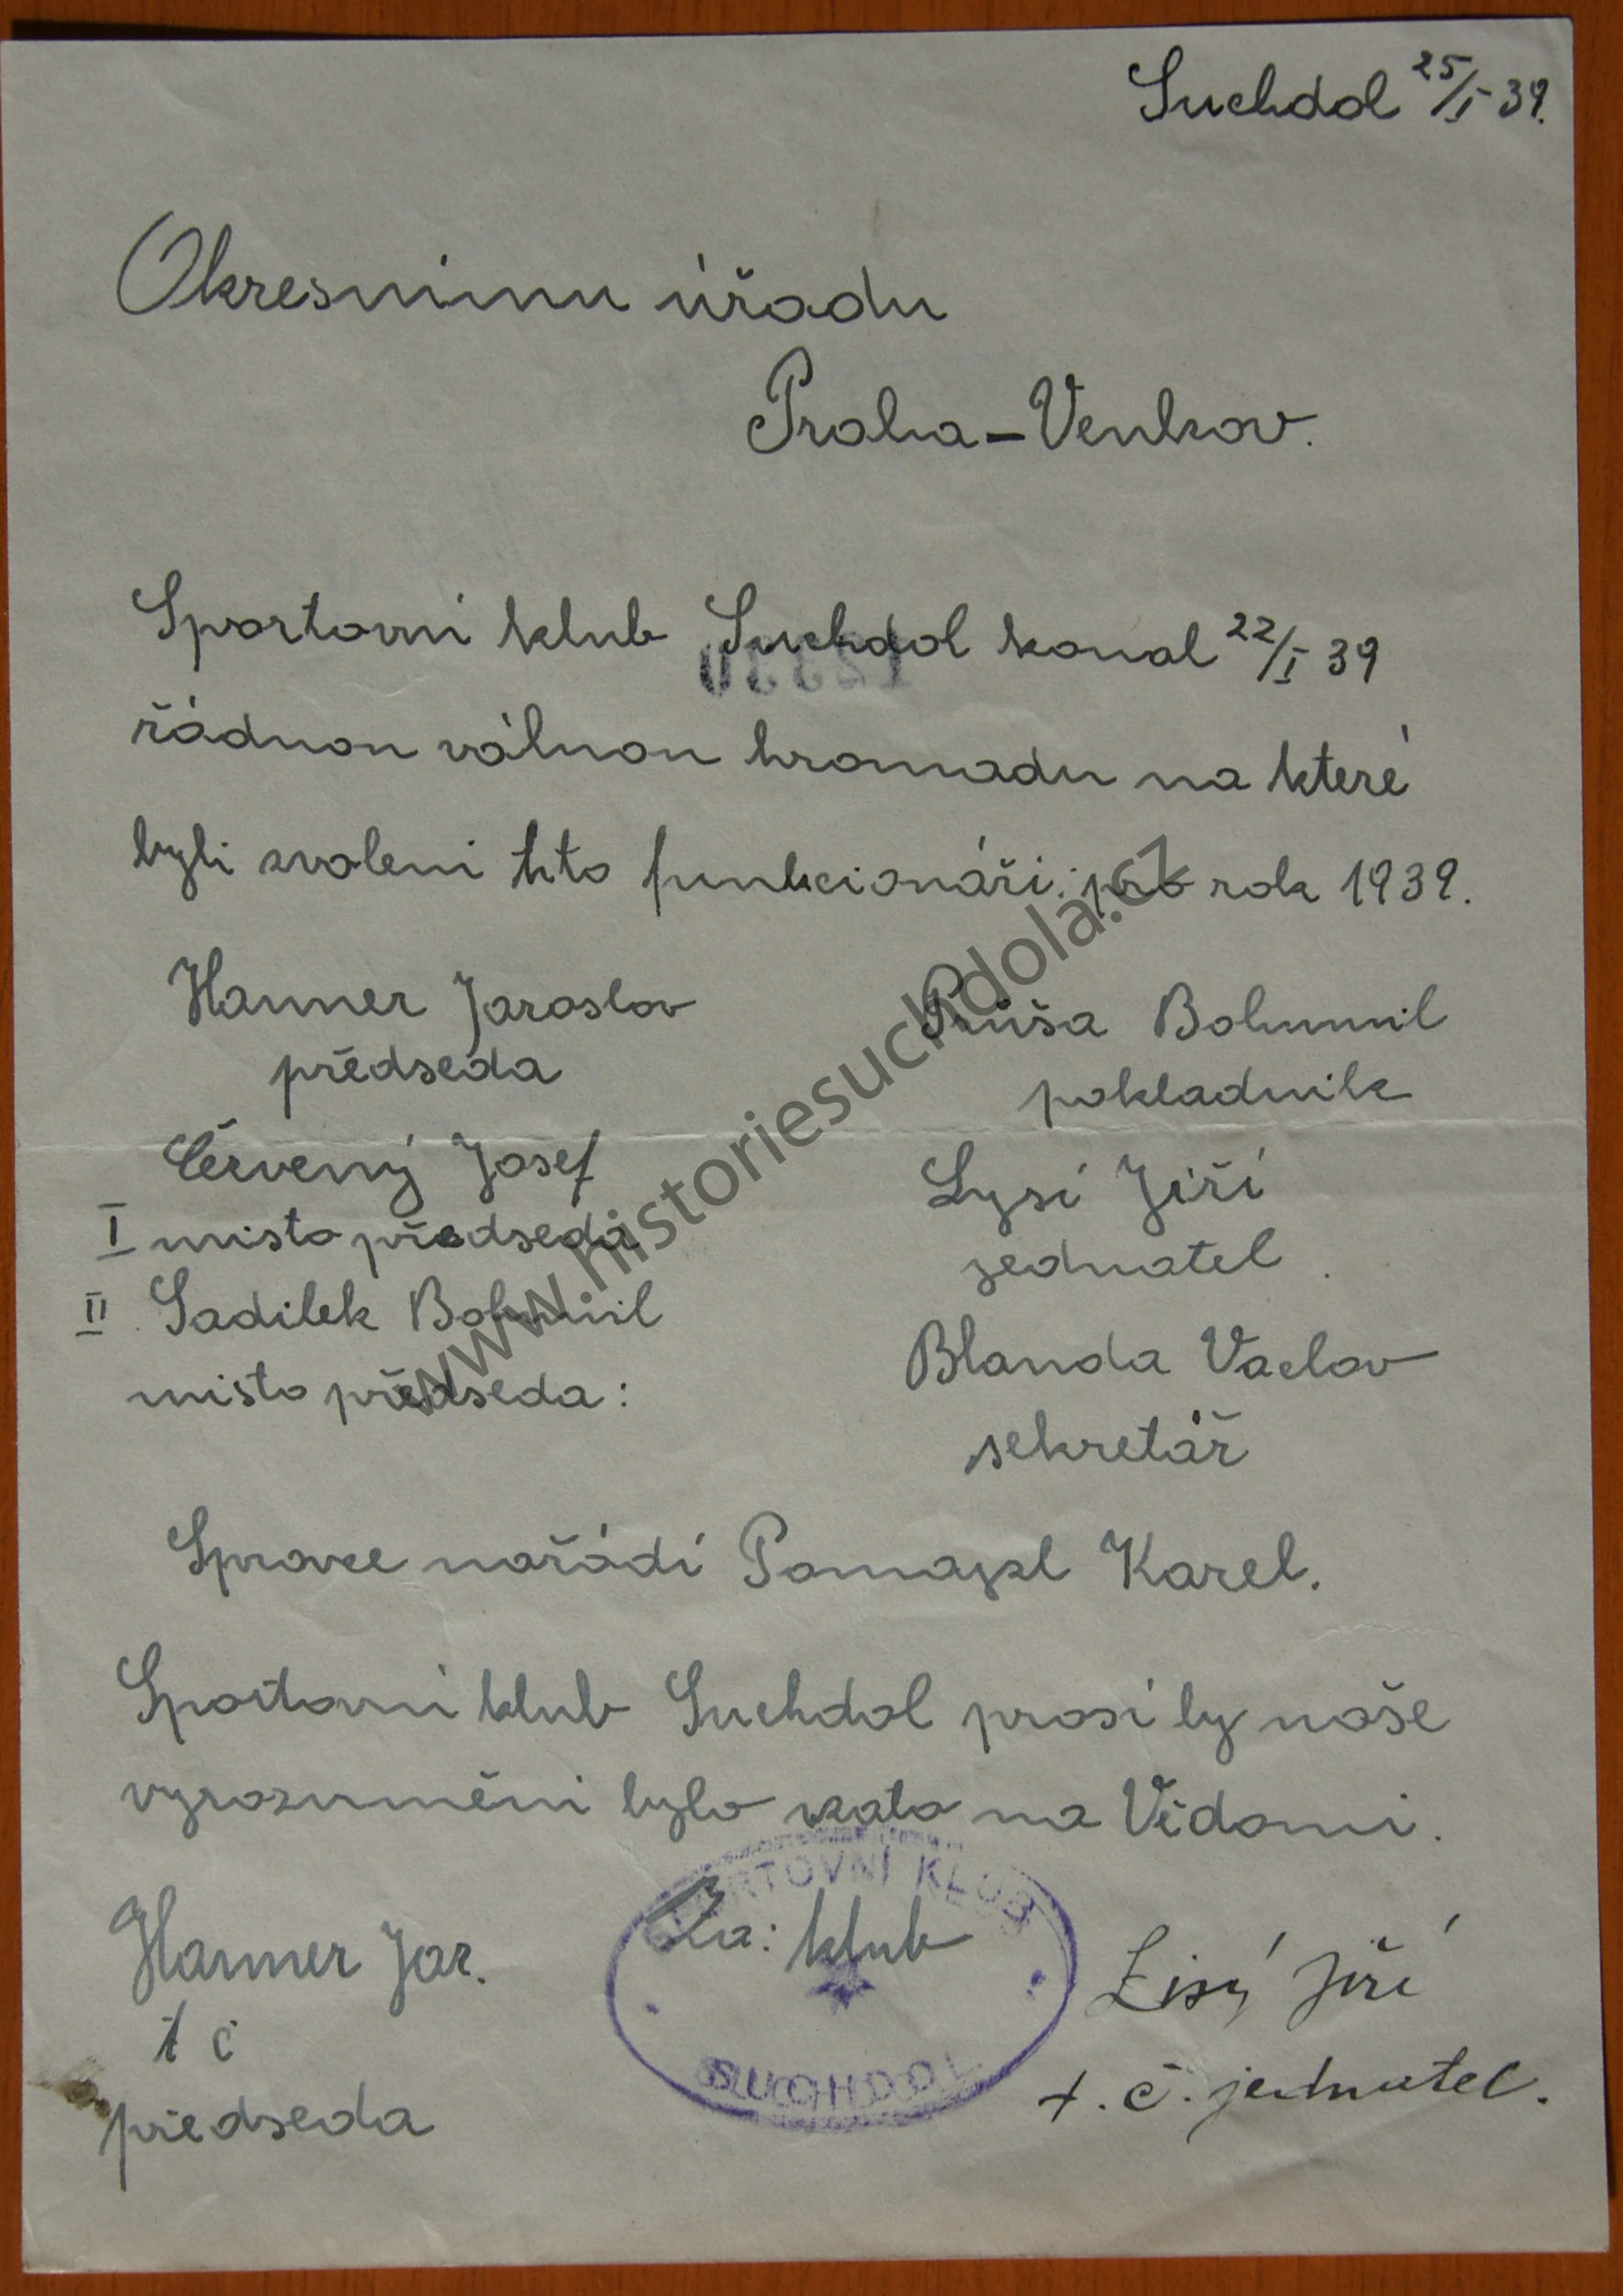 Suchdol 25/I 39.
Okresnimu úřadu
Praha-Venkov.
Sportovni klub Suchdol konal 22/I 39
řádnou válnou hromadu na které
byli zvoleni tito funkcionáři: pro rok 1939.
Hanner Jaroslav
předseda
Červený Josef
I misto předseda
II Sadilek Bohumil
misto předseda:
Průša Bohumil
pokladnik
Lysí Jiří
jednatel.
Blanda Vaclav
sekretář
Spravce nařádí Pomajzl Karel.
Sportovni klub Suchdol prosí by naše
vyrozuměni bylo vzato na Vědomi.
Hanner Jar.
t č
předseda
Za: klub
SPORTOVNÍ KLUB
SUCHDOL
Lisý Jiří
t. č. jednatel.
www.historiesuchdola.cz